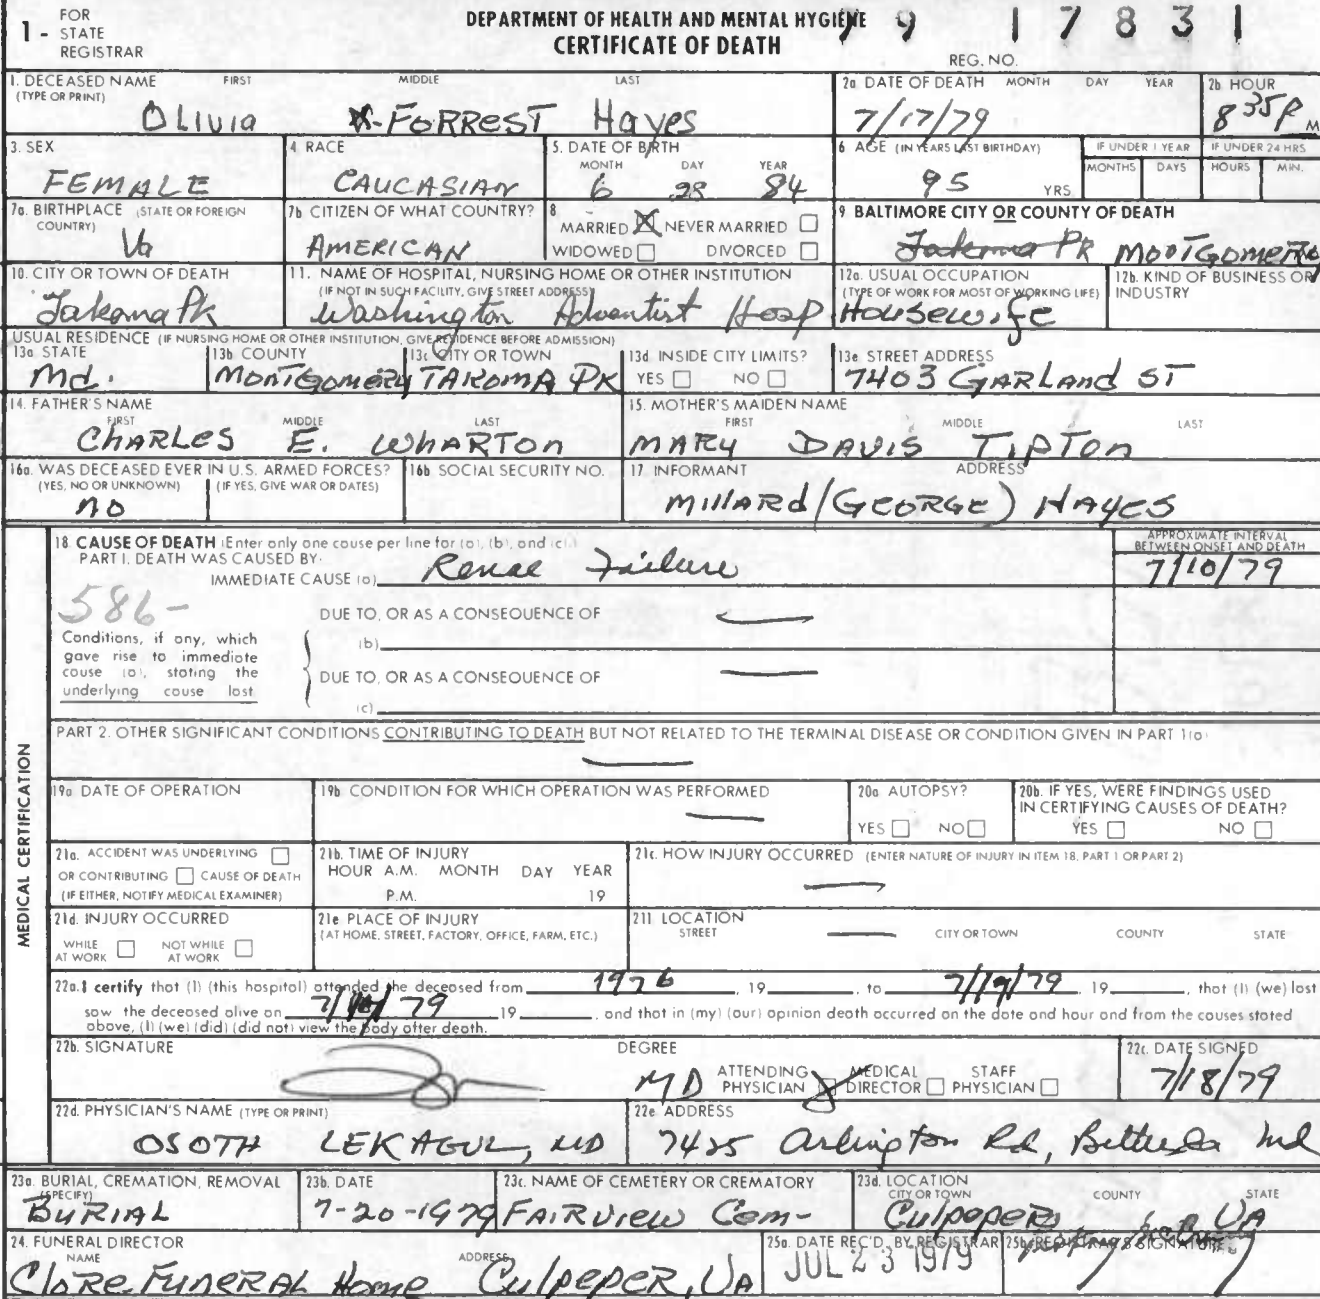 1 - FOR STATE REGISTRAR
DEPARTMENT OF HEALTH AND MENTAL HYGIENE
CERTIFICATE OF DEATH
79 17831
REG. NO.
1. DECEASED NAME (TYPE OR PRINT) FIRST MIDDLE LAST
OLIVIA FORREST Hayes
2a. DATE OF DEATH MONTH DAY YEAR
7/17/79
2b. HOUR
8 35 P M
3. SEX
FEMALE
4. RACE
CAUCASIAN
5. DATE OF BIRTH MONTH DAY YEAR
6 28 84
6. AGE (IN YEARS LAST BIRTHDAY)
95 YRS.
IF UNDER 1 YEAR MONTHS DAYS
IF UNDER 24 HRS HOURS MIN.
7a. BIRTHPLACE (STATE OR FOREIGN COUNTRY)
Va
7b. CITIZEN OF WHAT COUNTRY?
AMERICAN
8. MARRIED NEVER MARRIED
WIDOWED DIVORCED
9. BALTIMORE CITY OR COUNTY OF DEATH
Takoma PK MONTGOMERY
10. CITY OR TOWN OF DEATH
Takoma Pk
11. NAME OF HOSPITAL, NURSING HOME OR OTHER INSTITUTION
(IF NOT IN SUCH FACILITY, GIVE STREET ADDRESS)
Washington Adventist Hosp
12a. USUAL OCCUPATION
(TYPE OF WORK FOR MOST OF WORKING LIFE)
Housewife
12b. KIND OF BUSINESS OR INDUSTRY
USUAL RESIDENCE (IF NURSING HOME OR OTHER INSTITUTION, GIVE RESIDENCE BEFORE ADMISSION)
13a. STATE
Md.
13b. COUNTY
MONTGOMERY
13c. CITY OR TOWN
TAKOMA PK
13d. INSIDE CITY LIMITS?
YES NO
13e. STREET ADDRESS
7403 GARLand ST
14. FATHER'S NAME FIRST MIDDLE LAST
CHARLES E. WHARTON
15. MOTHER'S MAIDEN NAME FIRST MIDDLE LAST
MARY DAVIS TIPTON
16a. WAS DECEASED EVER IN U.S. ARMED FORCES?
(YES, NO OR UNKNOWN) (IF YES, GIVE WAR OR DATES)
NO
16b. SOCIAL SECURITY NO.
17. INFORMANT ADDRESS
Millard (GEORGE) HAYES
MEDICAL CERTIFICATION
18. CAUSE OF DEATH (Enter only one cause per line for (a), (b), and (c).)
PART I. DEATH WAS CAUSED BY:
IMMEDIATE CAUSE (a) Renal Failure
APPROXIMATE INTERVAL BETWEEN ONSET AND DEATH
7/10/79
586-
Conditions, if any, which gave rise to immediate cause (a), stating the underlying cause last
DUE TO, OR AS A CONSEQUENCE OF
(b)
DUE TO, OR AS A CONSEQUENCE OF
(c)
PART 2. OTHER SIGNIFICANT CONDITIONS CONTRIBUTING TO DEATH BUT NOT RELATED TO THE TERMINAL DISEASE OR CONDITION GIVEN IN PART 1(a)
19a. DATE OF OPERATION
19b. CONDITION FOR WHICH OPERATION WAS PERFORMED
20a. AUTOPSY?
YES NO
20b. IF YES, WERE FINDINGS USED IN CERTIFYING CAUSES OF DEATH?
YES NO
21a. ACCIDENT WAS UNDERLYING
OR CONTRIBUTING CAUSE OF DEATH
(IF EITHER, NOTIFY MEDICAL EXAMINER)
21b. TIME OF INJURY
HOUR A.M. MONTH DAY YEAR
P.M. 19
21c. HOW INJURY OCCURRED (ENTER NATURE OF INJURY IN ITEM 18, PART 1 OR PART 2)
21d. INJURY OCCURRED
WHILE AT WORK NOT WHILE AT WORK
21e. PLACE OF INJURY
(AT HOME, STREET, FACTORY, OFFICE, FARM, ETC.)
21f. LOCATION
STREET CITY OR TOWN COUNTY STATE
22a. I certify that (I) (this hospital) attended the deceased from 1976, 19 , to 7/19/79, 19 , that (I) (we) last
saw the deceased alive on 79 19 , and that in (my) (our) opinion death occurred on the date and hour and from the causes stated
above, (I) (we) (did) (did not) view the body after death.
22b. SIGNATURE
DEGREE
MD ATTENDING PHYSICIAN MEDICAL DIRECTOR STAFF PHYSICIAN
22c. DATE SIGNED
7/18/79
22d. PHYSICIAN'S NAME (TYPE OR PRINT)
OSOTH LEKAGUL, MD
22e. ADDRESS
7425 Arlington Rd, Bethesda Md
23a. BURIAL, CREMATION, REMOVAL (SPECIFY)
BURIAL
23b. DATE
7-20-1979
23c. NAME OF CEMETERY OR CREMATORY
FAIRVIEW Cem-
23d. LOCATION
CITY OR TOWN COUNTY STATE
Culpeper VA
24. FUNERAL DIRECTOR
NAME ADDRESS
Clore Funeral Home Culpeper, VA
25a. DATE REC'D. BY REGISTRAR
JUL 23 1979
25b. REGISTRAR'S SIGNATURE